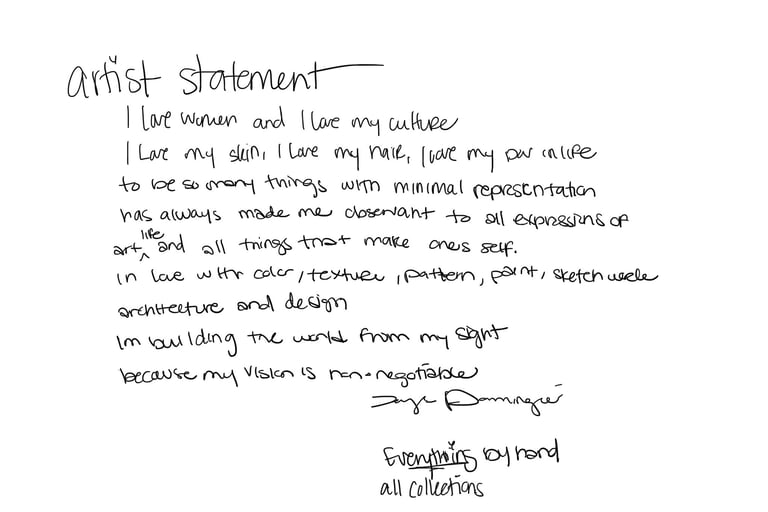 artist statement
I love women and I love my culture
I love my skin, I love my hair, I love my pov in life
to be so many things with minimal representation
has always made me observant to all expressions of
art, life and all things that make ones self.
in love with color, texture, pattern, paint, sketch
architecture and design
Im building the world from my sight
because my vision is non-negotiable
Everything by hand
all collections